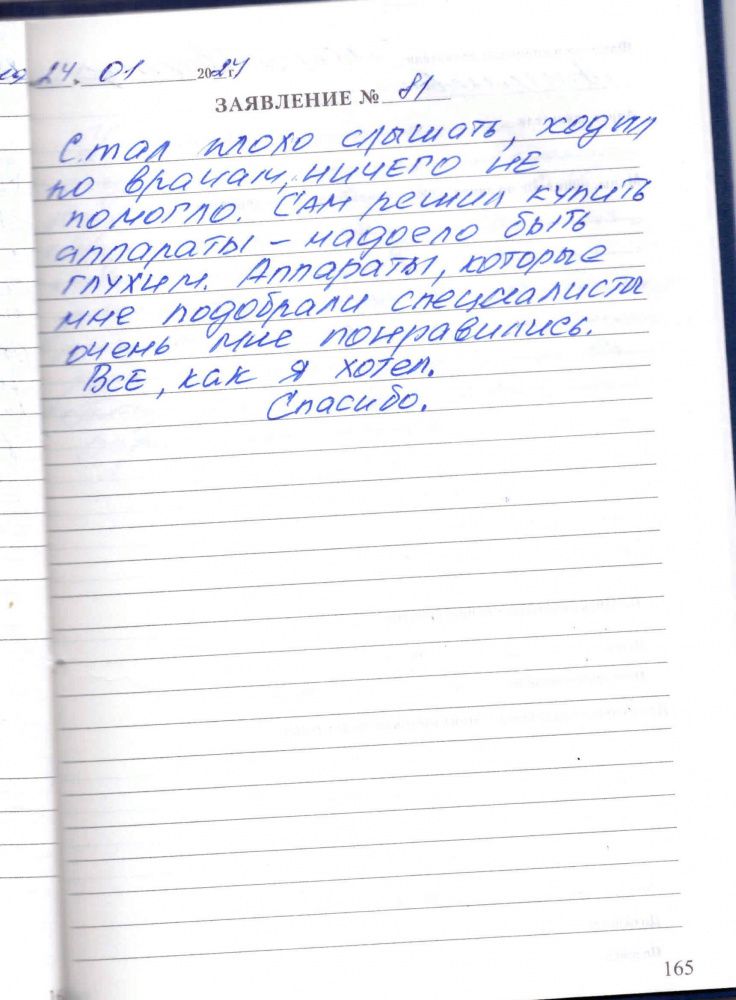 24. 01 2024 г.
ЗАЯВЛЕНИЕ № 81
Стал плохо слышать, ходил
по врачам, НИЧЕГО НЕ
помогло. САМ решил купить
аппараты – надоело быть
глухим. Аппараты, которые
мне подобрали специалисты
очень мне понравились.
ВсЕ, как я хотел.
Спасибо.
165